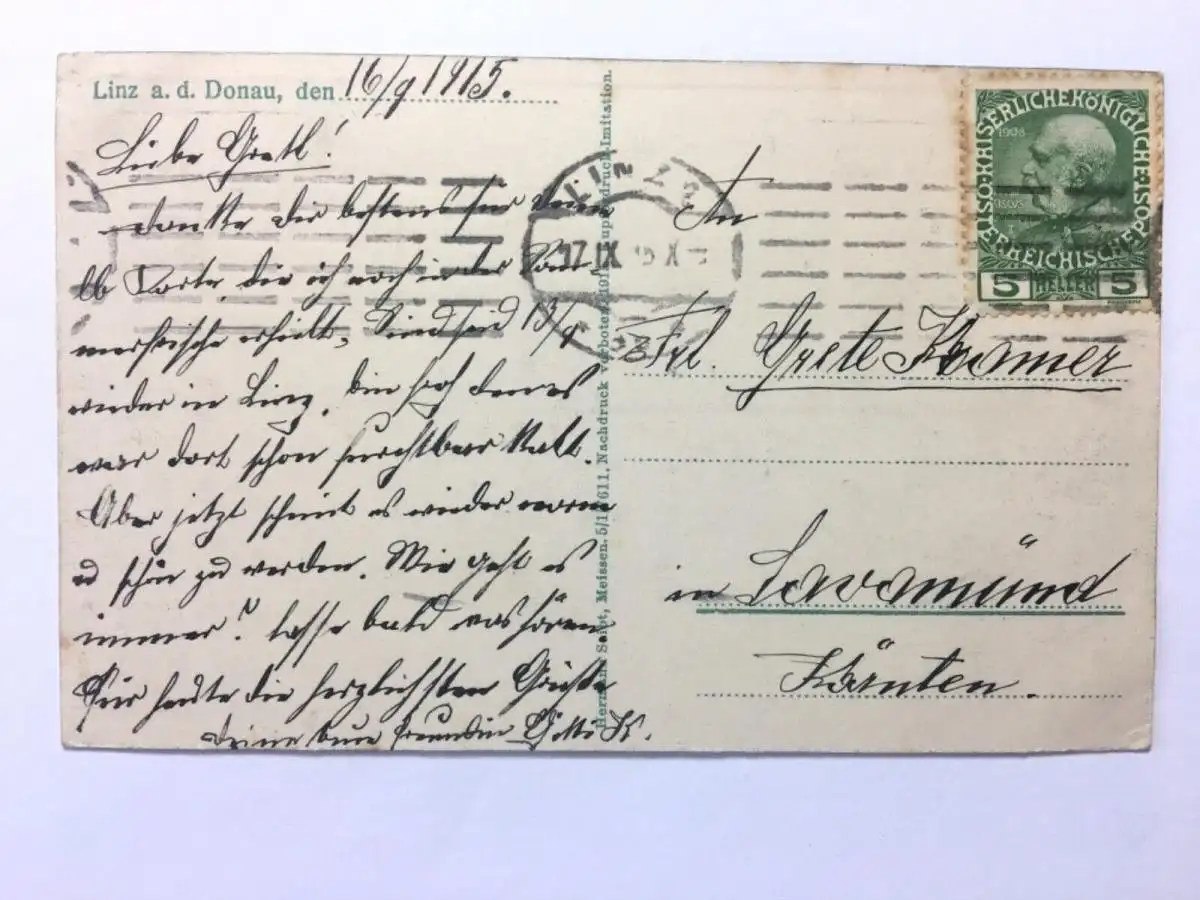 Linz a. d. Donau, den 16/9 1915.
Liebe Gretl!
danke Dir bestens für Deine
lb Karte die ich noch in der Som-
merfrische erhielt. Sind seit 13/9
wieder in Linz, bin froh denn es
war dort schon furchtbar kalt.
Aber jetzt scheint es wieder warm
u schön zu werden. Wie geht es
immer? lasse bald was hören
Für heute die herzlichsten Grüße
Deine Freundin K.
Hermann Seibt, Meissen. 5/1 7611, Nachdruck verboten. 191 Kupferdruck-Imitation.
LINZ 2
17 IX 15 X
An
Frl. Grete Kramer
in Lavamünd
Kärnten.
KAISERLICHEKÖNIGLICHE ÖSTERREICHISCHE POST
1908
5 HELLER 5